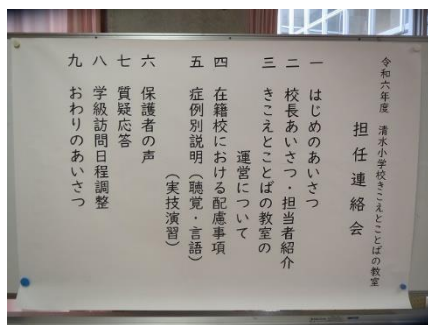 令和六年度 清水小学校きこえとことばの教室
担任連絡会
一 はじめのあいさつ
二 校長あいさつ・担当者紹介
三 きこえとことばの教室の
運営について
四 在籍校における配慮事項
五 症例別説明(聴覚・言語)
(実技演習)
六 保護者の声
七 質疑応答
八 学級訪問日程調整
九 おわりのあいさつ